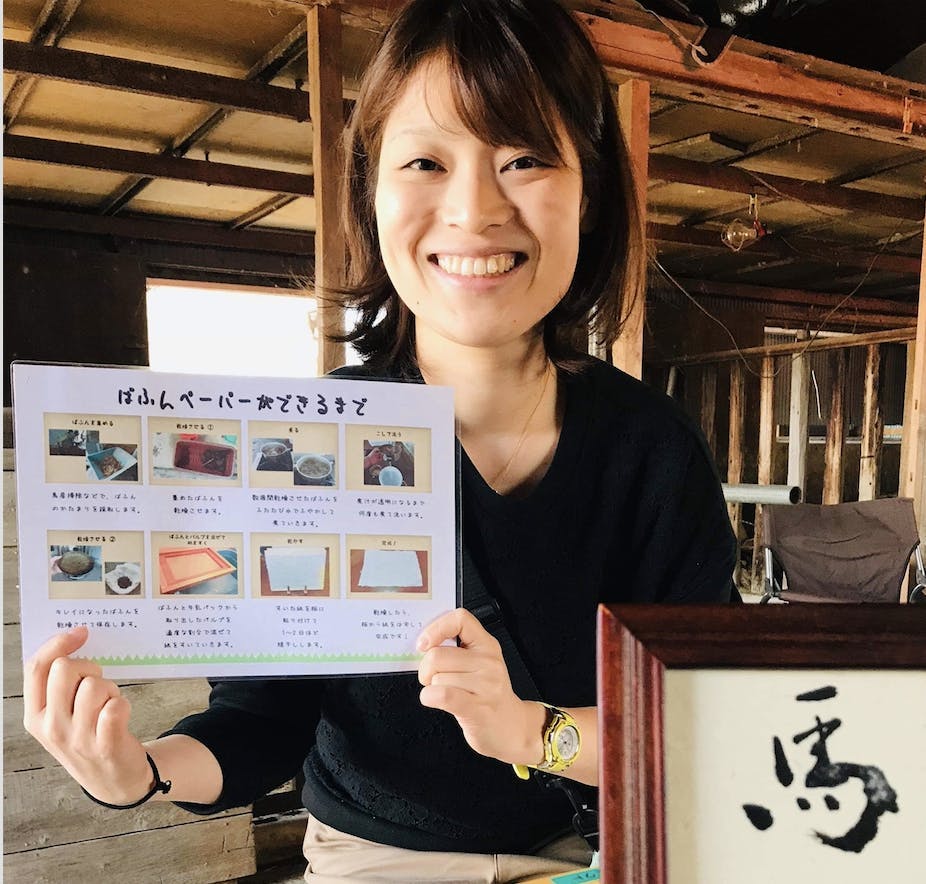 ばふんペーパーができるまで
ばふんを集める
乾燥させる ①
煮る
こして洗う
馬房掃除などで、ばふん
のかたまりを採取します。
集めたばふんを
乾燥させます。
数週間乾燥させたばふんを
ふたたび水でふやかして
煮ていきます。
煮汁が透明になるまで
何度も煮て洗います。
乾燥させる ②
ばふんとパルプを混ぜて
乾かす
完成!
キレイになったばふんを
乾燥させて保存します。
ばふんと牛乳パックから
取り出したパルプを
適度な割合で混ぜて
紙をすいていきます。
すいた紙を板に
貼り付けて
1〜2日ほど
陰干しします。
乾燥したら、
板から紙をはがして
完成です!
馬